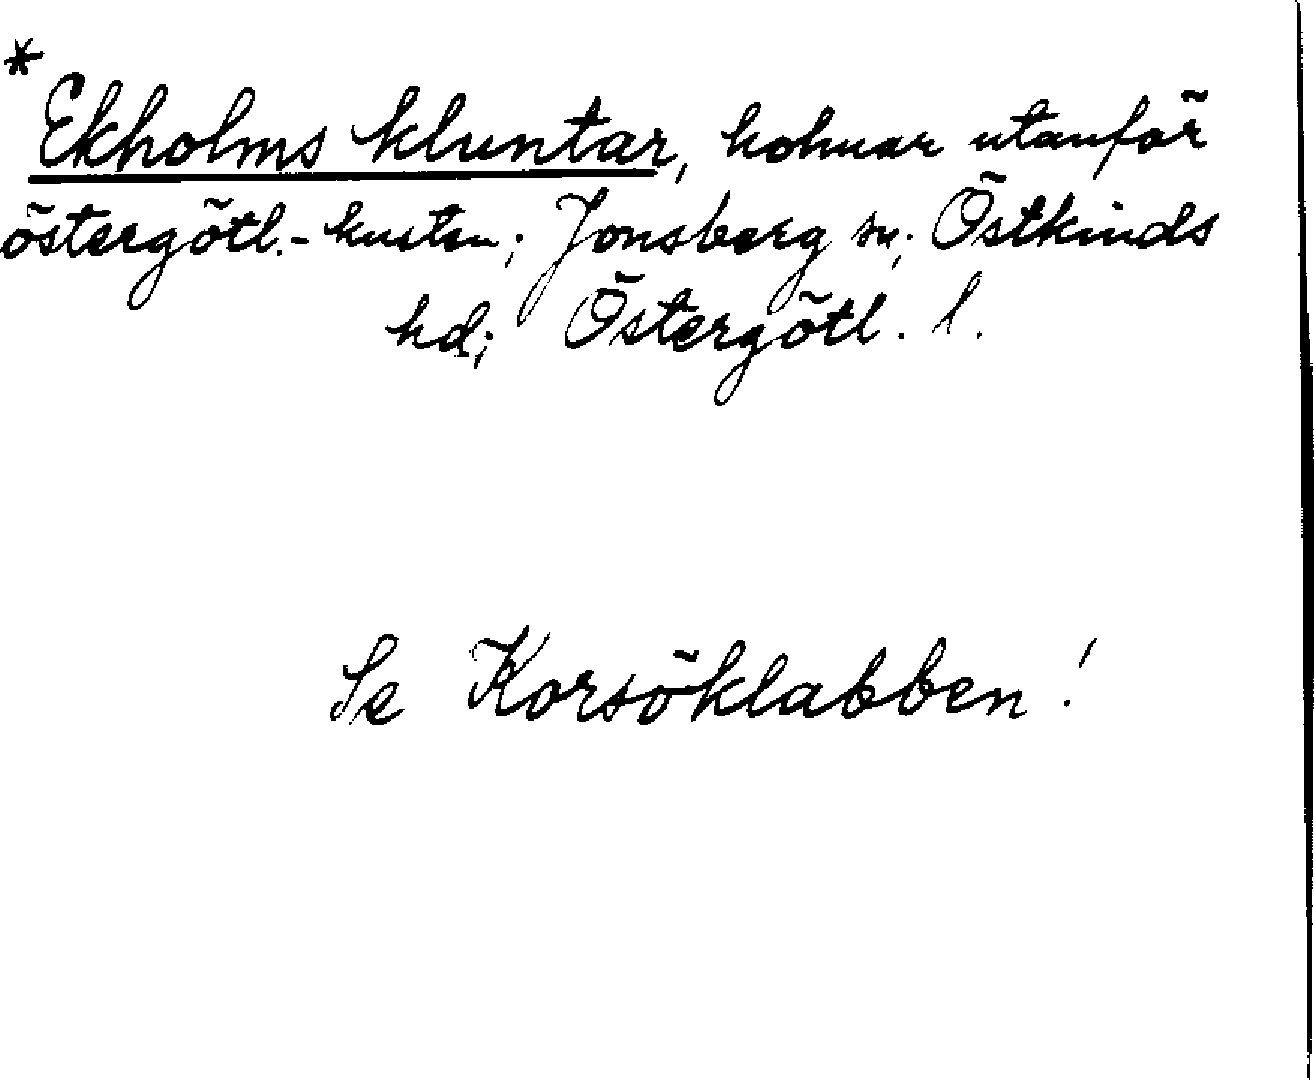 *
Ekholms kluntar, holmar utanför
östergötl.-kusten; Jonsberg sn; Östkinds
hd; Östergötl. l.
Se Korsöklabben!